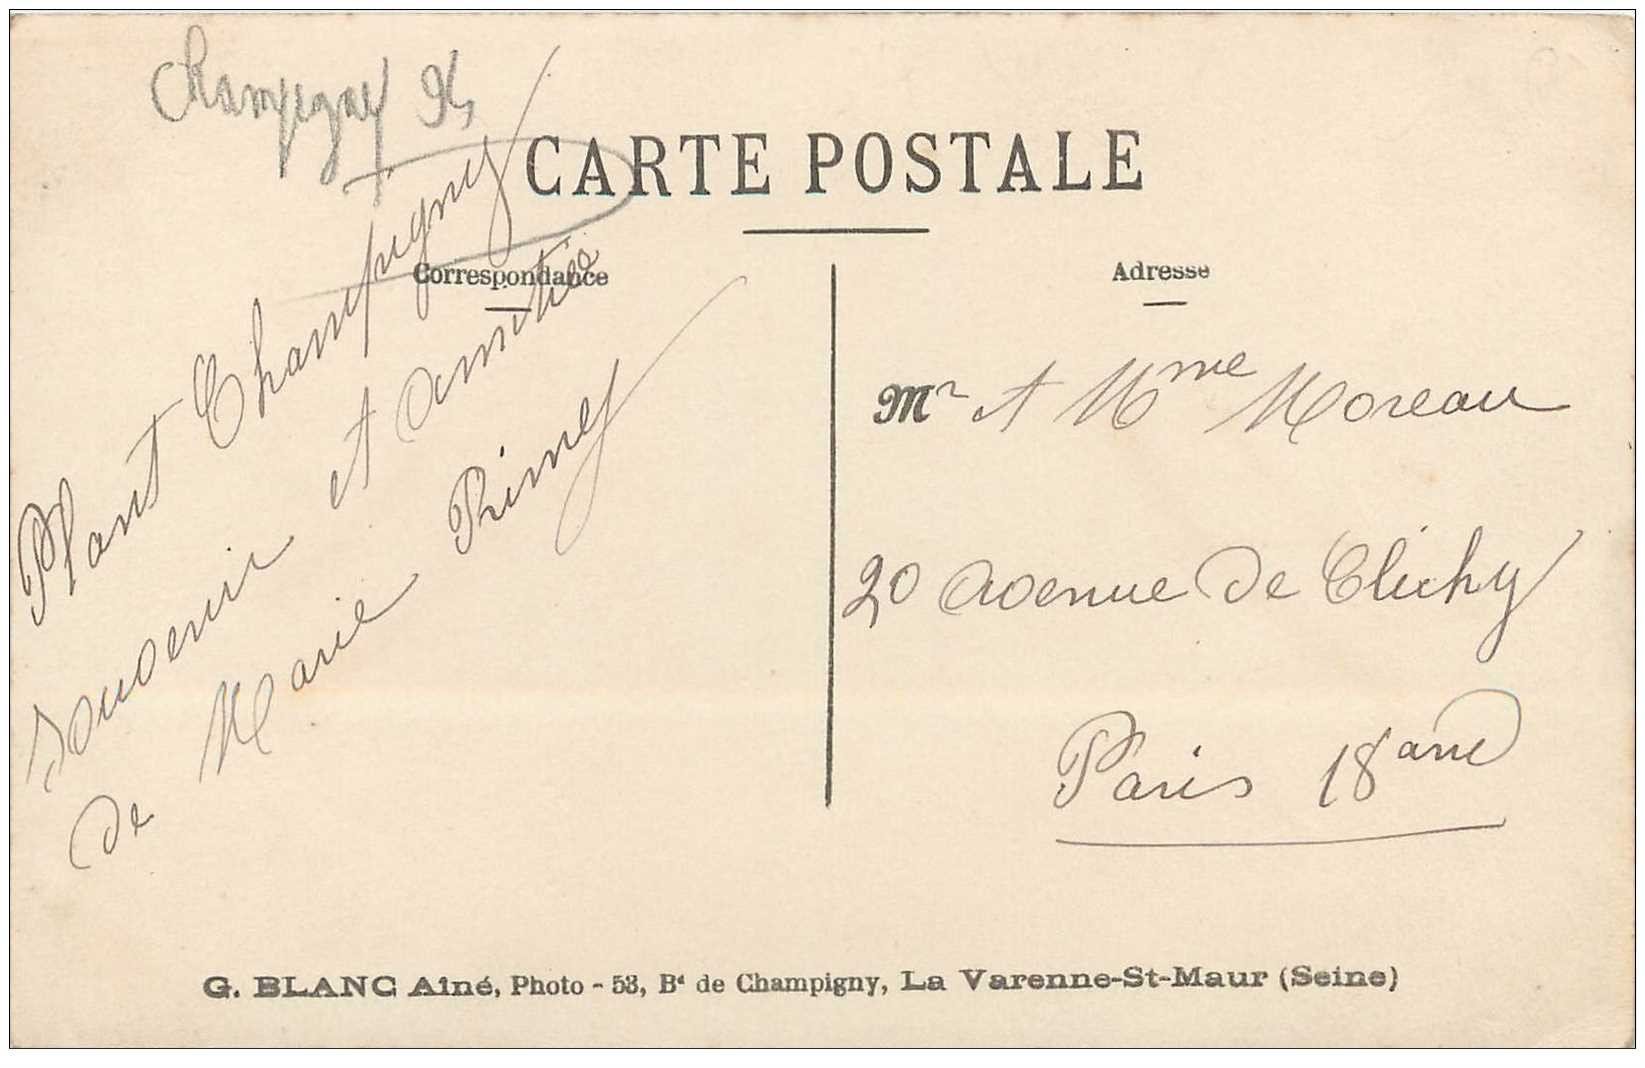 Champigny 94
CARTE POSTALE
Correspondance
Plant Champigny
Souvenir et amitiés
de Marie
Adresse
Mr et Mme Moreau
20 avenue de Clichy
Paris 18eme
G. BLANC Aîné, Photo - 53, Bd de Champigny, La Varenne-St-Maur (Seine)